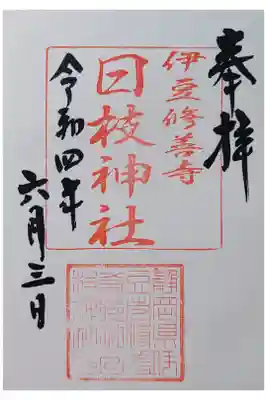 奉拝
伊豆修善寺
日枝神社
令和四年
六月三日